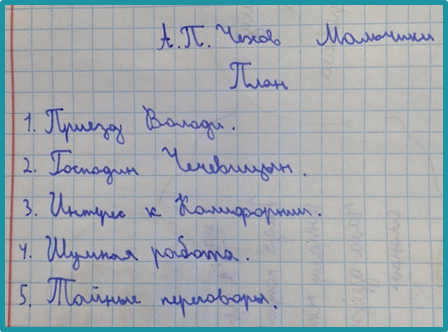 А.П. Чехов Мальчики
План
1. Приезд Володи.
2. Господин Чечевицын.
3. Интерес к Калифорнии.
4. Шумная работа.
5. Тайные переговоры.